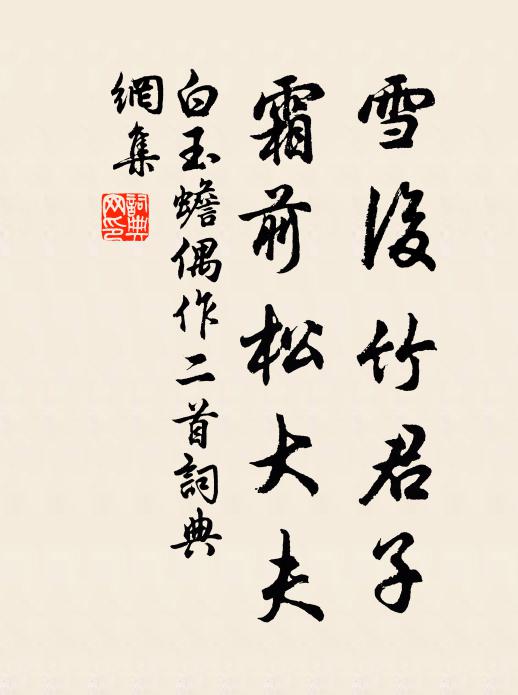 雪後竹君子
霜前松大夫
白玉蟾偶作二首詞典
網集
詞典
网印